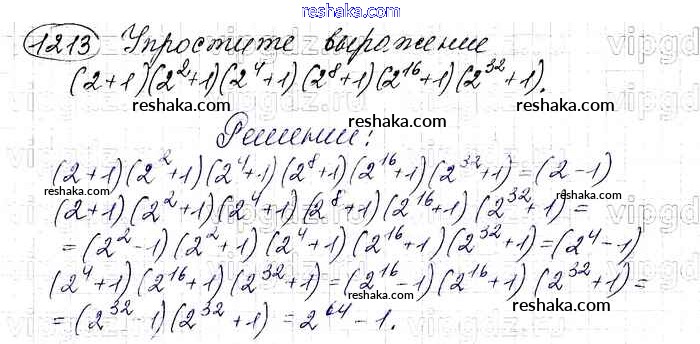 reshaka.com
1213 Упростите выражение
(2+1)(2²+1)(2⁴+1)(2⁸+1)(2¹⁶+1)(2³²+1).
reshaka.com reshaka.com
Решение:
(2+1)(2²+1)(2⁴+1)(2⁸+1)(2¹⁶+1)(2³²+1)=(2-1)
reshaka.com reshaka.com
(2+1)(2²+1)(2⁴+1)(2⁸+1)(2¹⁶+1)(2³²+1)=
=(2²-1)(2²+1)(2⁴+1)(2¹⁶+1)(2³²+1)=(2⁴-1)
(2⁴+1)(2¹⁶+1)(2³²+1)=(2¹⁶-1)(2¹⁶+1)(2³²+1)=
reshaka.com reshaka.com
=(2³² 1)(2³²+1)=2⁶⁴-1.
reshaka.com